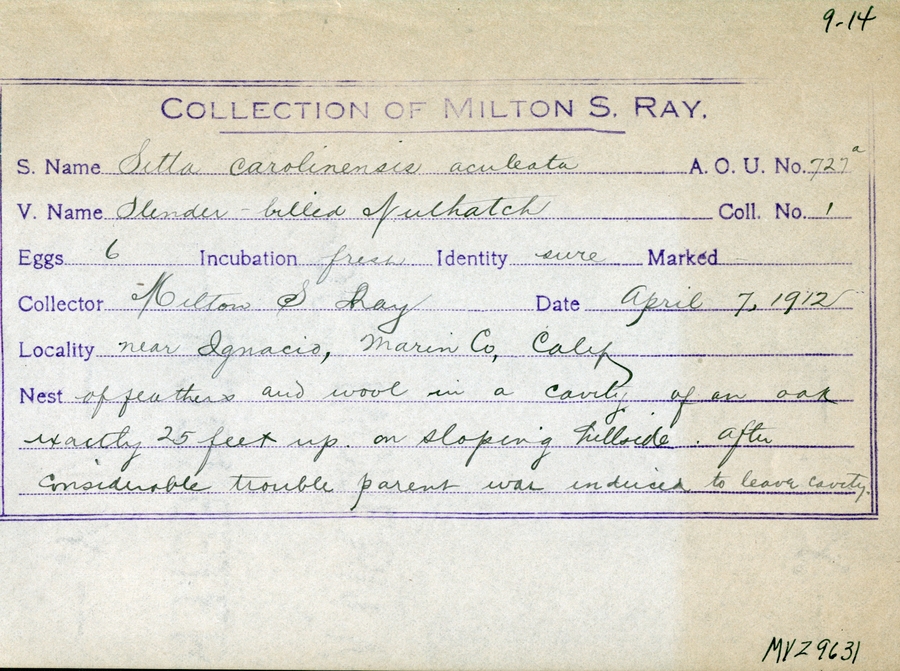 9-14
COLLECTION OF MILTON S. RAY.
S. Name Sitta carolinensis aculeata A. O. U. No. 727a
V. Name Slender-billed Nuthatch Coll. No. 1
Eggs 6 Incubation fresh Identity sure Marked
Collector Milton S Ray Date April 7, 1912
Locality near Ignacio, Marin Co, Calif
Nest of feathers and wool in a cavity of an oak
exactly 25 feet up. on sloping hillside. After
considerable trouble parent was induced to leave cavity.
MVZ 9631